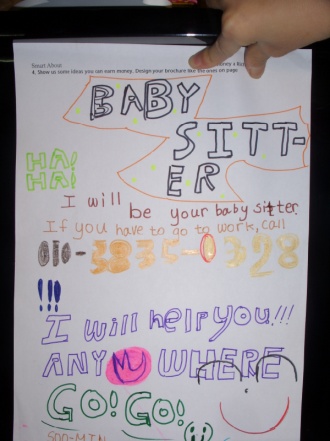 Smart About
4. Show us some ideas you can earn money. Design your brochure like the ones on page
BABY
SITT-
ER
HA!
HA!
I will
be your baby sitter.
If you have to go to work, call
010-3835-0328
!!!
I will help you!!!
ANY WHERE
GO! GO!
SOO-MIN